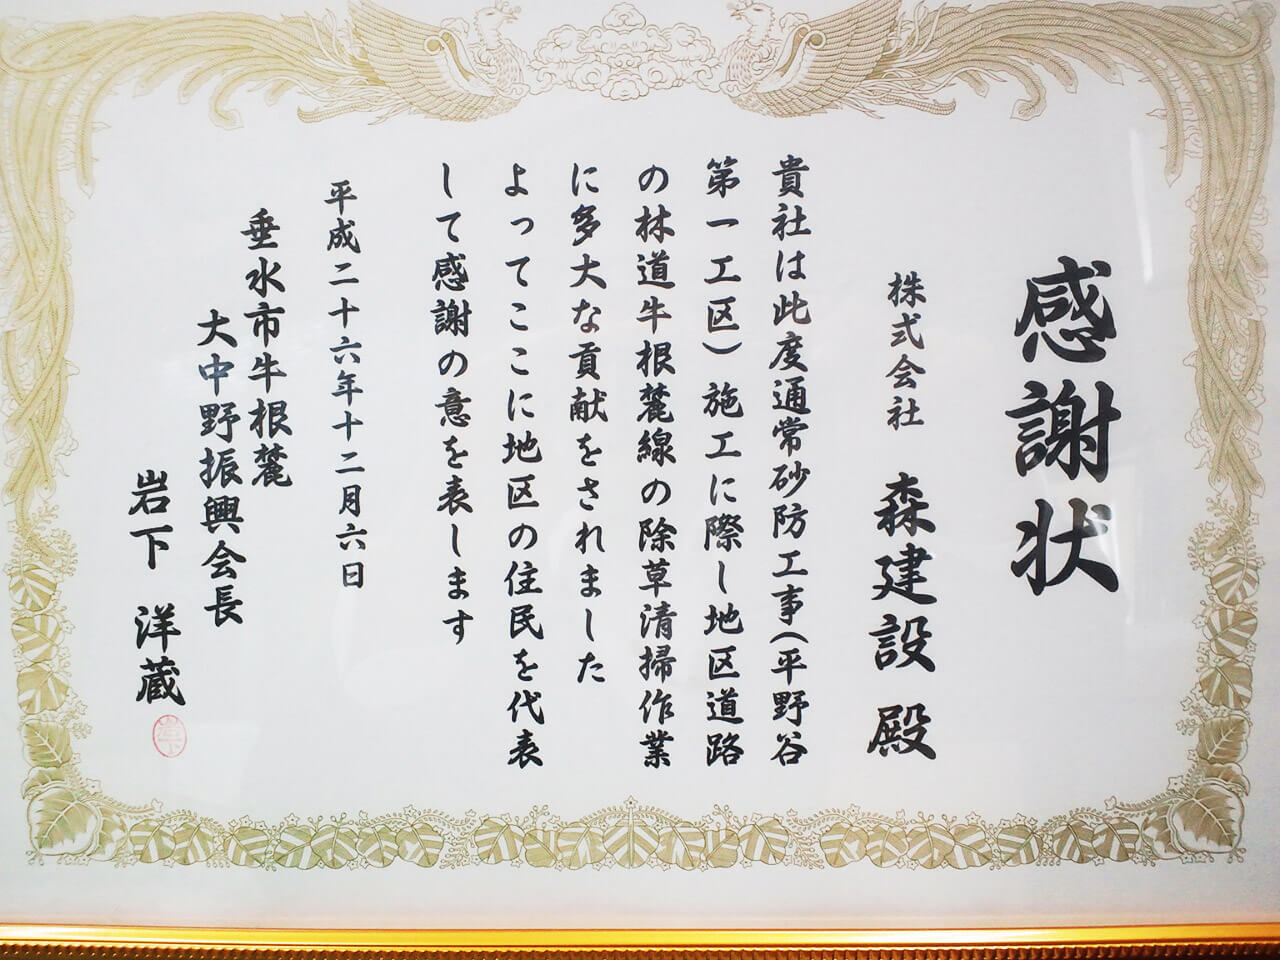 感謝状
株式会社 森建設 殿
貴社は此度通常砂防工事(平野谷
第一工区)施工に際し地区道路
の林道牛根麓線の除草清掃作業
に多大な貢献をされました
よってここに地区の住民を代表
して感謝の意を表します
平成二十六年十二月六日
垂水市牛根麓
大中野振興会長
岩下 洋蔵
岩下